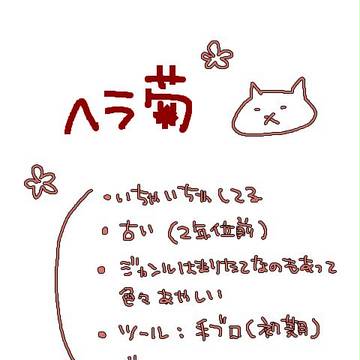 ヘラ菊
・いちゃいちゃしてる
・古い（2年位前）
・ジャンルはまりたてなのもあって
色々あやしい
・ツール：手ブロ（初期）